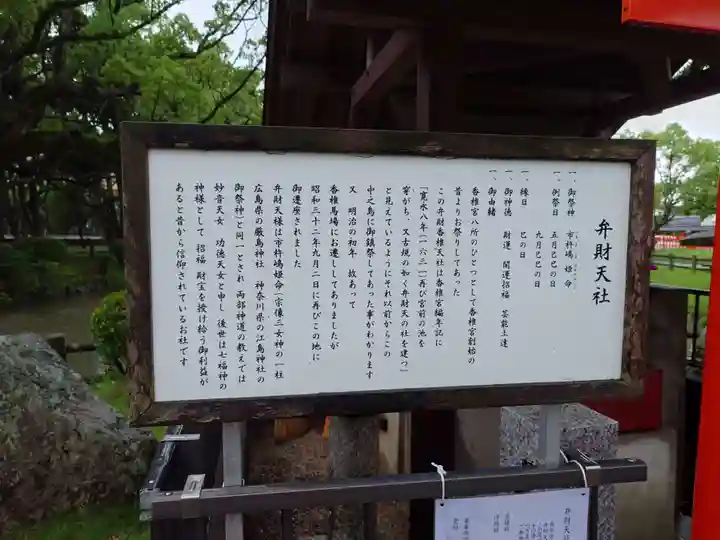 弁財天社
一、御祭神　市杵嶋姫命
一、例祭日　五月巳巳の日
九月巳巳の日
一、縁日　巳の日
一、御神徳　財運　開運招福　芸能上達
一、御由緒
香椎宮八所のひとつとして香椎宮創始の
昔よりお祭りしてあった
この弁財香椎天社は香椎宮編年記に
「寛永八年(一六三一)再び宮前の池を
穿がち、又古規の如く弁財天の社を建つ」
と見えているようにそれ以前からこの
中之島に御鎮祭してあった事がわかります
又　明治の初年　故あって
香椎馬場にお遷ししてありましたが
昭和三十二年九月二日に再びこの地に
御遷座されました
弁財天様は市杵嶋姫命(宗像三女神の一柱
広島県の厳島神社　神奈川県の江島神社の
御祭神)と同一とされ　両部神道の教えでは
妙音天女　功徳天女と申し　後世は七福神の
神様として　招福　財宝を授け給う御利益が
あると昔から信仰されているお社です
弁財天社